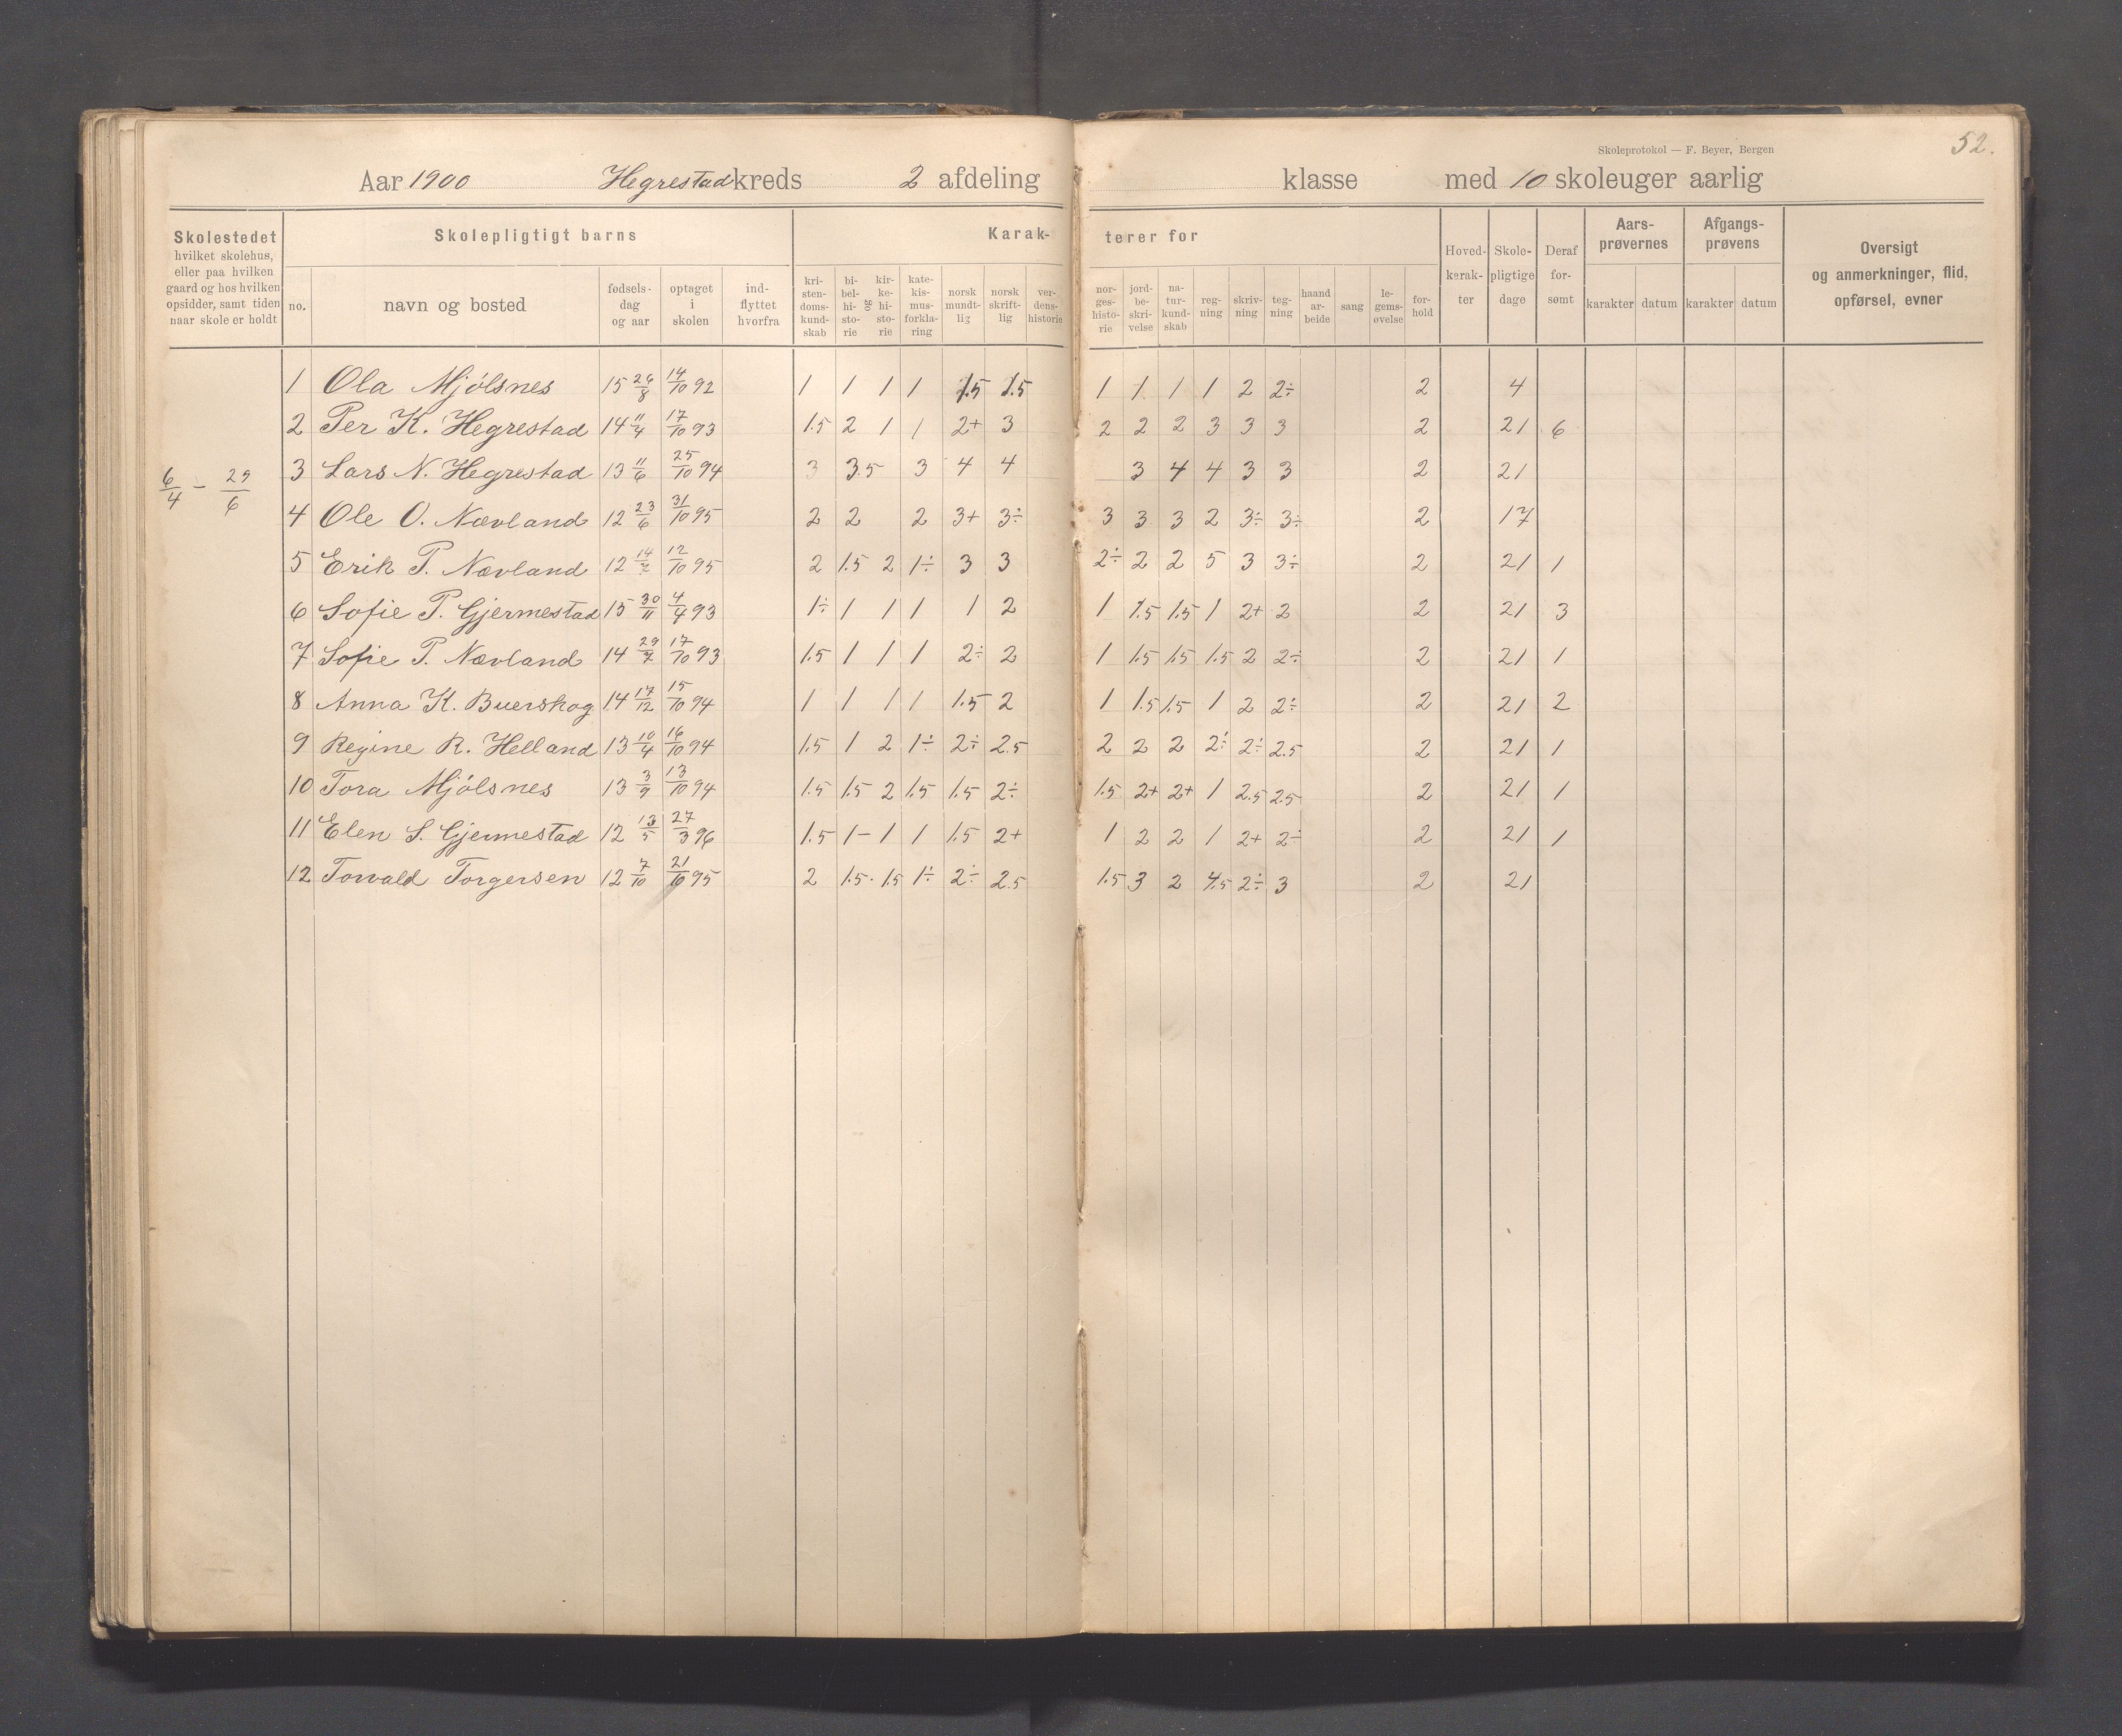 Skoleprotokol — F. Beyer, Bergen
52.
Aar 1900 Hegrestad kreds 2 afdeling klasse med 10 skoleuger aarlig
Skolestedet hvilket skolehus, eller paa hvilken gaard og hos hvilken opsidder, samt tiden naar skole er holdt
Skolepligtigt barns
no. navn og bosted fødsels-dag og aar optaget i skolen ind-flyttet hvorfra
Karak-terer for
kri-sten-doms-kund-skab bi-bel-hi-sto-rie og kir-ke-hi-sto-rie kate-kis-mus-forkla-ring norsk mundt-lig norsk skrift-lig ver-dens-historie nor-ges-histo-rie jord-be-skri-velse na-tur-kund-skab reg-ning skriv-ning teg-ning haand ar-beide sang le-gems-øvelse for-hold
Hoved-karak-ter Skole-pligtige dage Deraf for-sømt
Aars-prøvernes karakter datum
Afgangs-prøvens karakter datum
Oversigt og anmerkninger, flid, opførsel, evner
6/4 - 29/6
1 Ola Mjölsnes 15 26/8 14/10 92 1 1 1 1 1.5 1.5 1 1 1 1 2 2÷ 2 4
2 Per K. Hegrestad 14 11/4 17/10 93 1.5 2 1 1 2+ 3 2 2 2 3 3 3 2 21 6
3 Lars N. Hegrestad 13 11/6 25/10 94 3 3.5 3 4 4 3 4 4 3 3 2 21
4 Ole O. Nævland 12 23/6 31/10 95 2 2 2 3+ 3÷ 3 3 3 2 3÷ 3÷ 2 17
5 Erik P. Nævland 12 14/7 12/10 95 2 1.5 2 1÷ 3 3 2÷ 2 2 5 3 3÷ 2 21 1
6 Sofie P. Gjermestad 15 30/11 4/4 93 1÷ 1 1 1 1 2 1 1.5 1.5 1 2+ 2 2 21 3
7 Sofie P. Nævland 14 29/7 17/10 93 1.5 1 1 1 2÷ 2 1 1.5 1.5 1.5 2 2÷ 2 21 1
8 Anna K. Buerskog 14 17/12 15/10 94 1 1 1 1 1.5 2 1 1.5 1.5 1 2 2÷ 2 21 2
9 Regine R. Helland 13 10/4 16/10 94 1.5 1 2 1÷ 2÷ 2.5 2 2 2 2÷ 2÷ 2.5 2 21 1
10 Tora Mjölsnes 13 3/9 13/10 94 1.5 1.5 2 1.5 1.5 2÷ 1.5 2+ 2+ 1 2.5 2.5 2 21 1
11 Elen S. Gjermestad 12 13/5 27/3 96 1.5 1- 1 1 1.5 2+ 1 2 2 1 2+ 2÷ 2 21 1
12 Torvald Torgersen 12 7/10 21/10 95 2 1.5. 1.5 1÷ 2÷ 2.5 1.5 3 2 4.5 2÷ 3 2 21